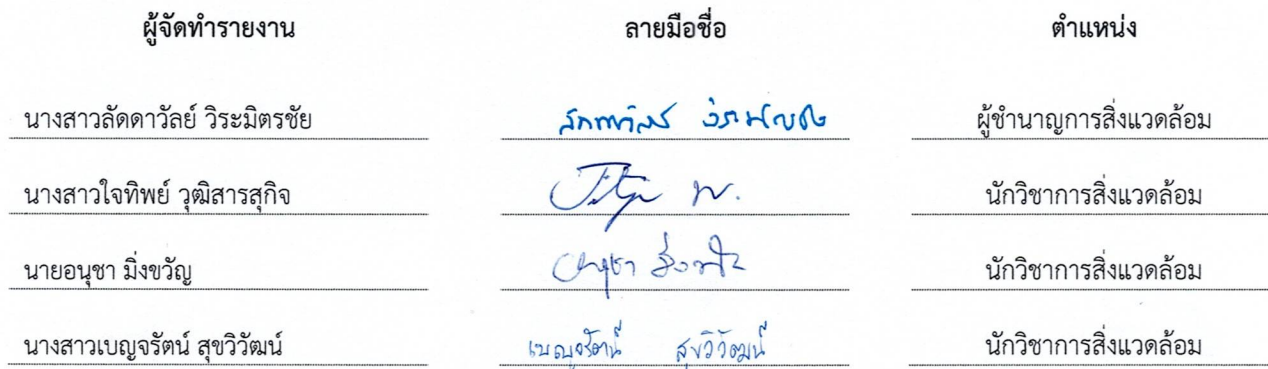 ผู้จัดทำรายงาน ลายมือชื่อ ตำแหน่ง
นางสาวลัดดาวัลย์ วิระมิตรชัย ลัดดาวัลย์ วิระมิตรชัย ผู้ชำนาญการสิ่งแวดล้อม
นางสาวใจทิพย์ วุฒิสารสุกิจ นักวิชาการสิ่งแวดล้อม
นายอนุชา มิ่งขวัญ อนุชา มิ่งขวัญ นักวิชาการสิ่งแวดล้อม
นางสาวเบญจรัตน์ สุขวิวัฒน์ เบญจรัตน์ สุขวิวัฒน์ นักวิชาการสิ่งแวดล้อม